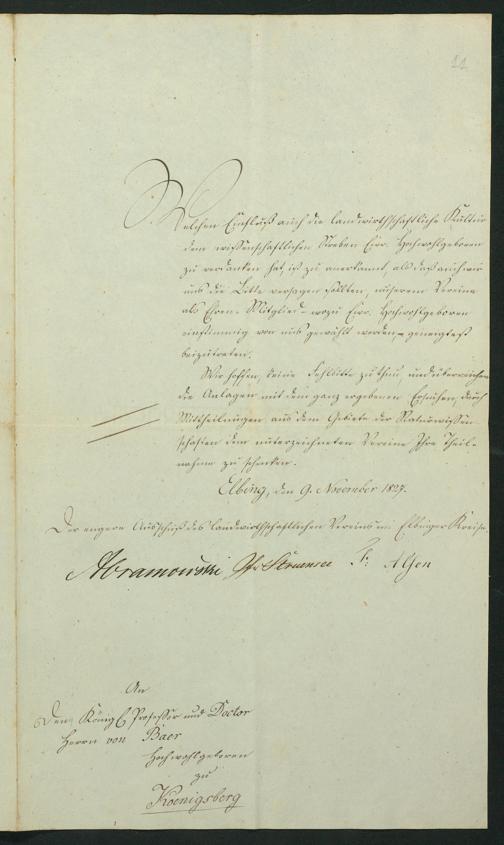 11
Welchen Einfluß auch die landwirthschaftliche Kultur
dem wissenschaftlichen Streben Ewr. Hochwohlgeboren
zu verdanken hat, ist zu anerkannt, als daß auch wir
uns die Bitte versagen sollten, unserem Vereine
als Ehren-Mitglied – wozu Ewr. Hochwohlgeboren
einstimmig von uns gewählt worden, – geneigtest
beizutreten.
Wir hoffen, keine Fehlbitte zu thun, und überreichen
die Anlagen mit dem ganz ergebenen Ersuchen, durch
Mittheilungen aus dem Gebiete der Naturwissen-
schaften dem unterzeichneten Vereine Ihre Theil-
nahme zu schenken.
Elbing, den 9. November 1827.
Der engere Ausschuß des landwirthschaftlichen Vereins im Elbinger Kreise.
Abramowski Struensee Alsen
An
Den Königl Professor und Doctor
Herrn von Baer
Hochwohlgeboren
zu
Koenigsberg